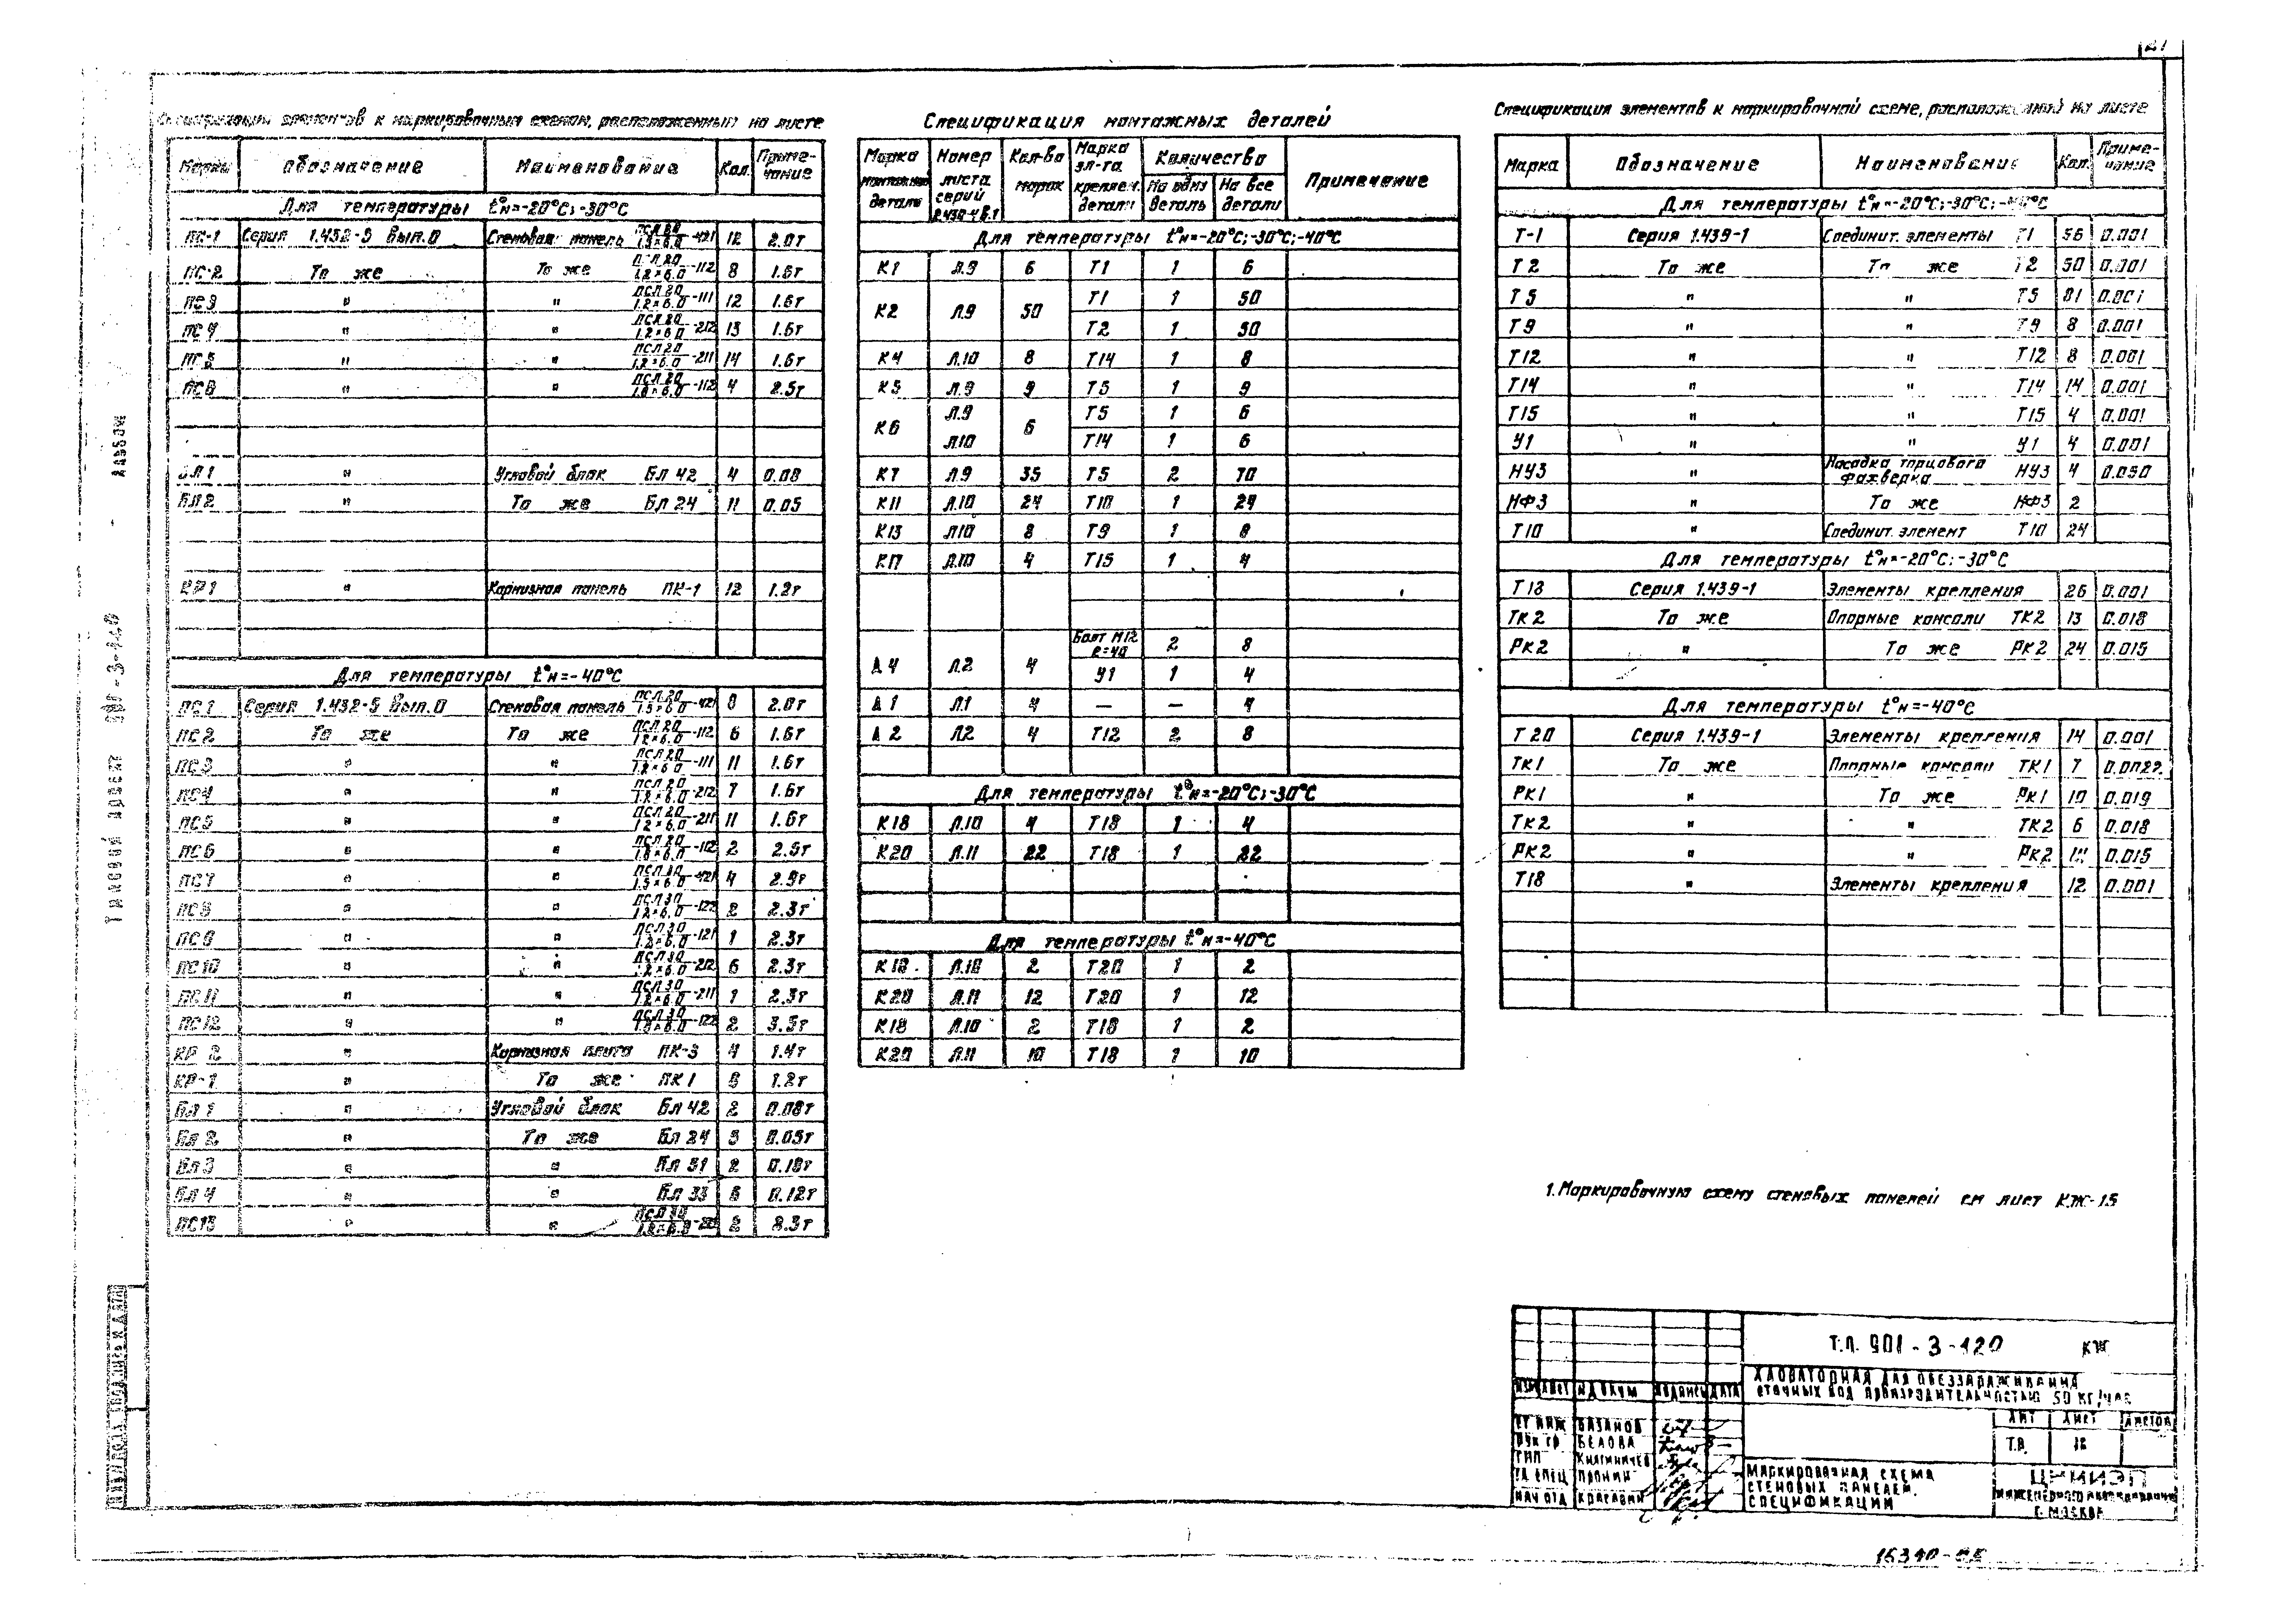 21
Спецификации элементов к маркировочным схемам, расположенным на листе
Марка Обозначение Наименование Кол. Приме-чание
Для температуры t°н=-20°С; -30°С
ПС-1 Серия 1.432-5 Вып.0 Стеновая панель ПСЛ20/1.5×6.0-421 12 2.0т
ПС-2 То же То же ПСЛ20/1.2×6.0-112 8 1.6т
ПС3 " " ПСЛ20/1.2×6.0-111 12 1.6т
ПС4 " " ПСЛ20/1.2×6.0-212 13 1.6т
ПС5 " " ПСЛ20/1.2×6.0-211 14 1.6т
ПС6 " " ПСЛ20/1.8×6.0-112 4 2.5т
БЛ1 " Угловой блок Бл 42 4 0.08
БЛ2 " То же Бл 24 11 0.05
КР1 " Карнизная панель ПК-1 12 1.2т
Для температуры t°н=-40°С
ПС1 Серия 1.432-5 Вып.0 Стеновая панель ПСЛ20/1.5×6.0-421 8 2.0т
ПС2 То же То же ПСЛ20/1.2×6.0-112 6 1.6т
ПС3 " " ПСЛ20/1.2×6.0-111 11 1.6т
ПС4 " " ПСЛ20/1.2×6.0-212 7 1.6т
ПС5 " " ПСЛ20/1.2×6.0-211 11 1.6т
ПС6 " " ПСЛ20/1.8×6.0-112 2 2.5т
ПС7 " " ПСЛ30/1.5×6.0-421 4 2.9т
ПС8 " " ПСЛ30/1.2×6.0-122 2 2.3т
ПС9 " " ПСЛ30/1.2×6.0-121 1 2.3т
ПС10 " " ПСЛ30/1.2×6.0-212 6 2.3т
ПС11 " " ПСЛ30/1.2×6.0-211 1 2.3т
ПС12 " " ПСЛ30/1.8×6.0-122 2 3.5т
КР 2 " Карнизная плита ПК-3 4 1.4т
КР-1 " То же ПК1 8 1.2т
Бл 1 " Угловой блок Бл 42 2 0.08т
Бл 2 " То же Бл 24 5 0.05т
Бл 3 " " Бл 51 2 0.18т
Бл 4 " " Бл 33 6 0.12т
ПС13 " " ПСЛ30/1.2×6.0 2 2.3т
Спецификация монтажных деталей
Марка монтажной детали Номер листа серий 2.430-4 в.1 Кол-во марок Марка эл-та креплен. детали Количество Примечание
На одну деталь На все детали
Для температуры t°н=-20°С; -30°С; -40°С
К1 Л.9 6 Т1 1 6
К2 Л.9 50 Т1 1 50
Т2 1 50
К4 Л.10 8 Т14 1 8
К5 Л.9 9 Т5 1 9
К6 Л.9 6 Т5 1 6
Л10 Т14 1 6
К7 Л.9 35 Т5 2 70
К11 Л.10 24 Т10 1 24
К13 Л10 8 Т9 1 8
К17 Л.10 4 Т15 1 4
Болт М12 ℓ=40 2 8
А4 Л.2 4 У1 1 4
А1 Л.1 4 — — 4
А2 Л.2 4 Т12 2 8
Для температуры t°н=-20°С; -30°С
К18 Л.10 4 Т18 1 4
К20 Л.11 22 Т18 1 22
Для температуры t°н=-40°С
К18 Л.10 2 Т20 1 2
К20 Л.11 12 Т20 1 12
К18 Л.10 2 Т18 1 2
К20 Л.11 10 Т18 1 10
Спецификация элементов к маркировочной схеме, расположенной на листе
Марка Обозначение Наименование Кол. Приме-чание
Для температуры t°н=-20°С; -30°С; -40°С
Т-1 Серия 1.439-1 Соединит. элементы Т1 56 0.001
Т2 То же То же Т2 50 0.001
Т5 " " Т5 81 0.001
Т9 " " Т9 8 0.001
Т12 " " Т12 8 0.001
Т14 " " Т14 14 0.001
Т15 " " Т15 4 0.001
У1 " " У1 4 0.001
НУ3 " Насадка торцового фахверка НУ3 4 0.050
НФ3 " То же НФ3 2
Т10 " Соединит. элемент Т10 24
Для температуры t°н=-20°С; -30°С
Т18 Серия 1.439-1 Элементы крепления 26 0.001
ТК2 То же Опорные консоли ТК2 13 0.018
РК2 " То же РК2 24 0.015
Для температуры t°н=-40°С
Т20 Серия 1.439-1 Элементы крепления 14 0.001
ТК1 То же Опорные консоли ТК1 7
РК1 " То же РК1 10 0.019
ТК2 " " ТК2 6 0.018
РК2 " " РК2 0.015
Т18 " Элементы крепления 12 0.001
1. Маркировочную схему стеновых панелей см лист КЖ-15
Альбом
Типовой проект
ИНВ.№ подл. Подпись и дата
Т.П. 901-3-120 КЖ
ХЛОРАТОРНАЯ ДЛЯ ОБЕЗЗАРАЖИВАНИЯ
СТОЧНЫХ ВОД ПРОИЗВОДИТЕЛЬНОСТЬЮ 50 КГ/ЧАС
ИЗМ ЛИСТ № ДОКУМ ПОДПИСЬ ДАТА
СТ ИНЖ БАЗАНОВ
РУК ГР БЕЛОВА
ГИП
ГЛ СПЕЦ ПРОНИН
НАЧ ОТД КРАСАВИН
ЛИТ ЛИСТ ЛИСТОВ
Т.Р. 16
МАРКИРОВОЧНАЯ СХЕМА
СТЕНОВЫХ ПАНЕЛЕЙ.
СПЕЦИФИКАЦИИ
ЦНИИЭП
ИНЖЕНЕРНОГО ОБОРУДОВАНИЯ
Г. МОСКВА